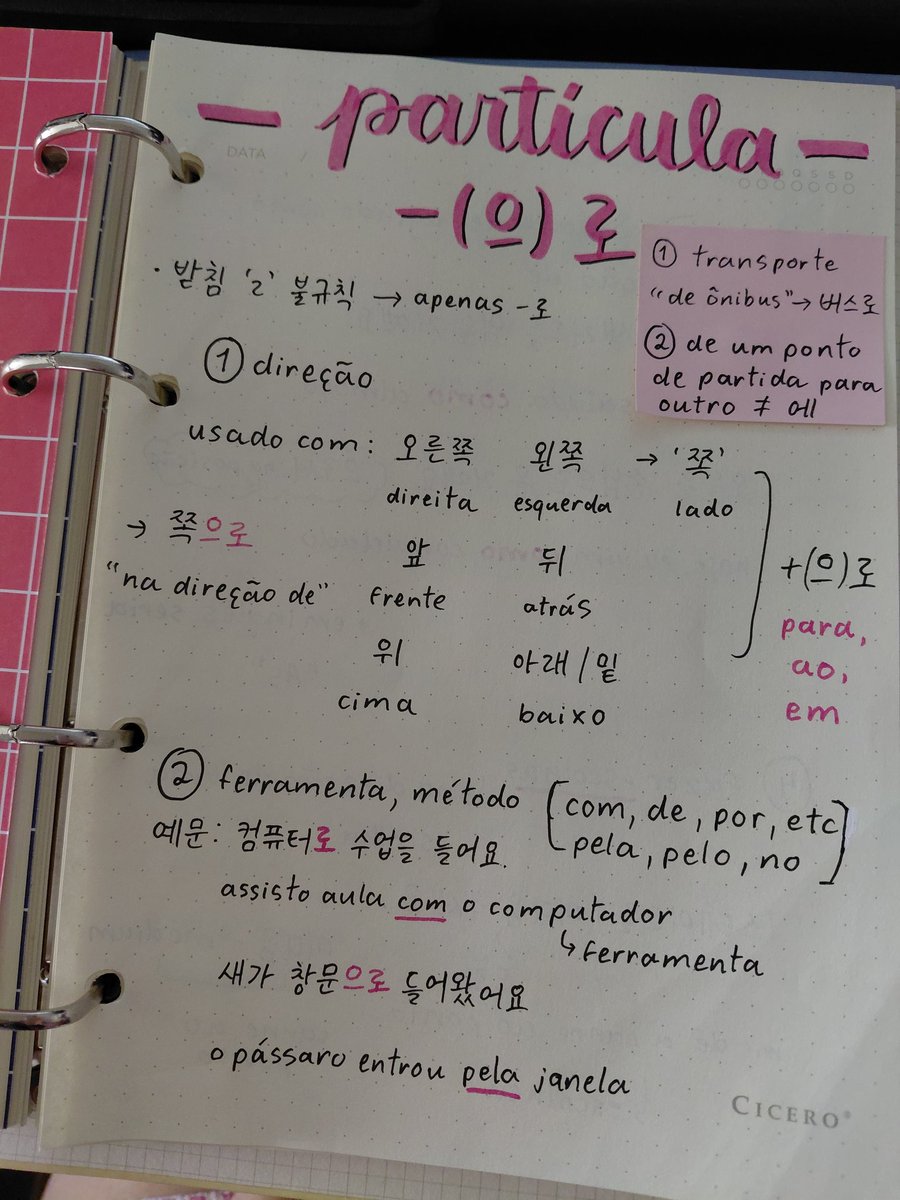 - partícula -
DATA
D S T Q Q S S D
-(으)로
· 받침 'ㄹ' 불규칙 → apenas -로
① transporte
"de ônibus" → 버스로
② de um ponto
de partida para
outro ≠ 에
① direção
usado com: 오른쪽 왼쪽 → '쪽'
direita esquerda lado
→ 쪽으로 앞 뒤
"na direção de" frente atrás
위 아래/밑
cima baixo
+(으)로
para,
ao,
em
② ferramenta, método [com, de, por, etc
pela, pelo, no]
예문: 컴퓨터로 수업을 들어요.
assisto aula com o computador
↳ ferramenta
새가 창문으로 들어왔어요
o pássaro entrou pela janela
CICERO®